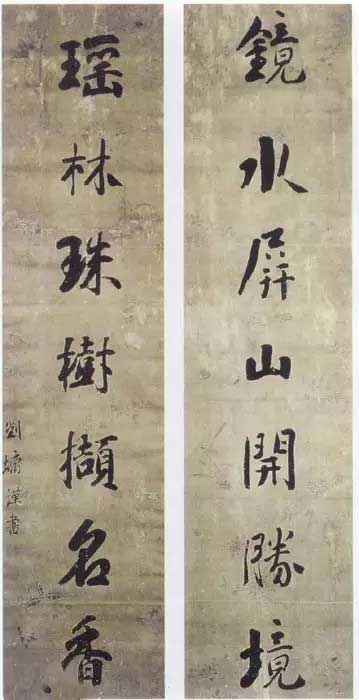 鏡水屏山開勝境
瑶林珠樹擷名香
劉墉漢書